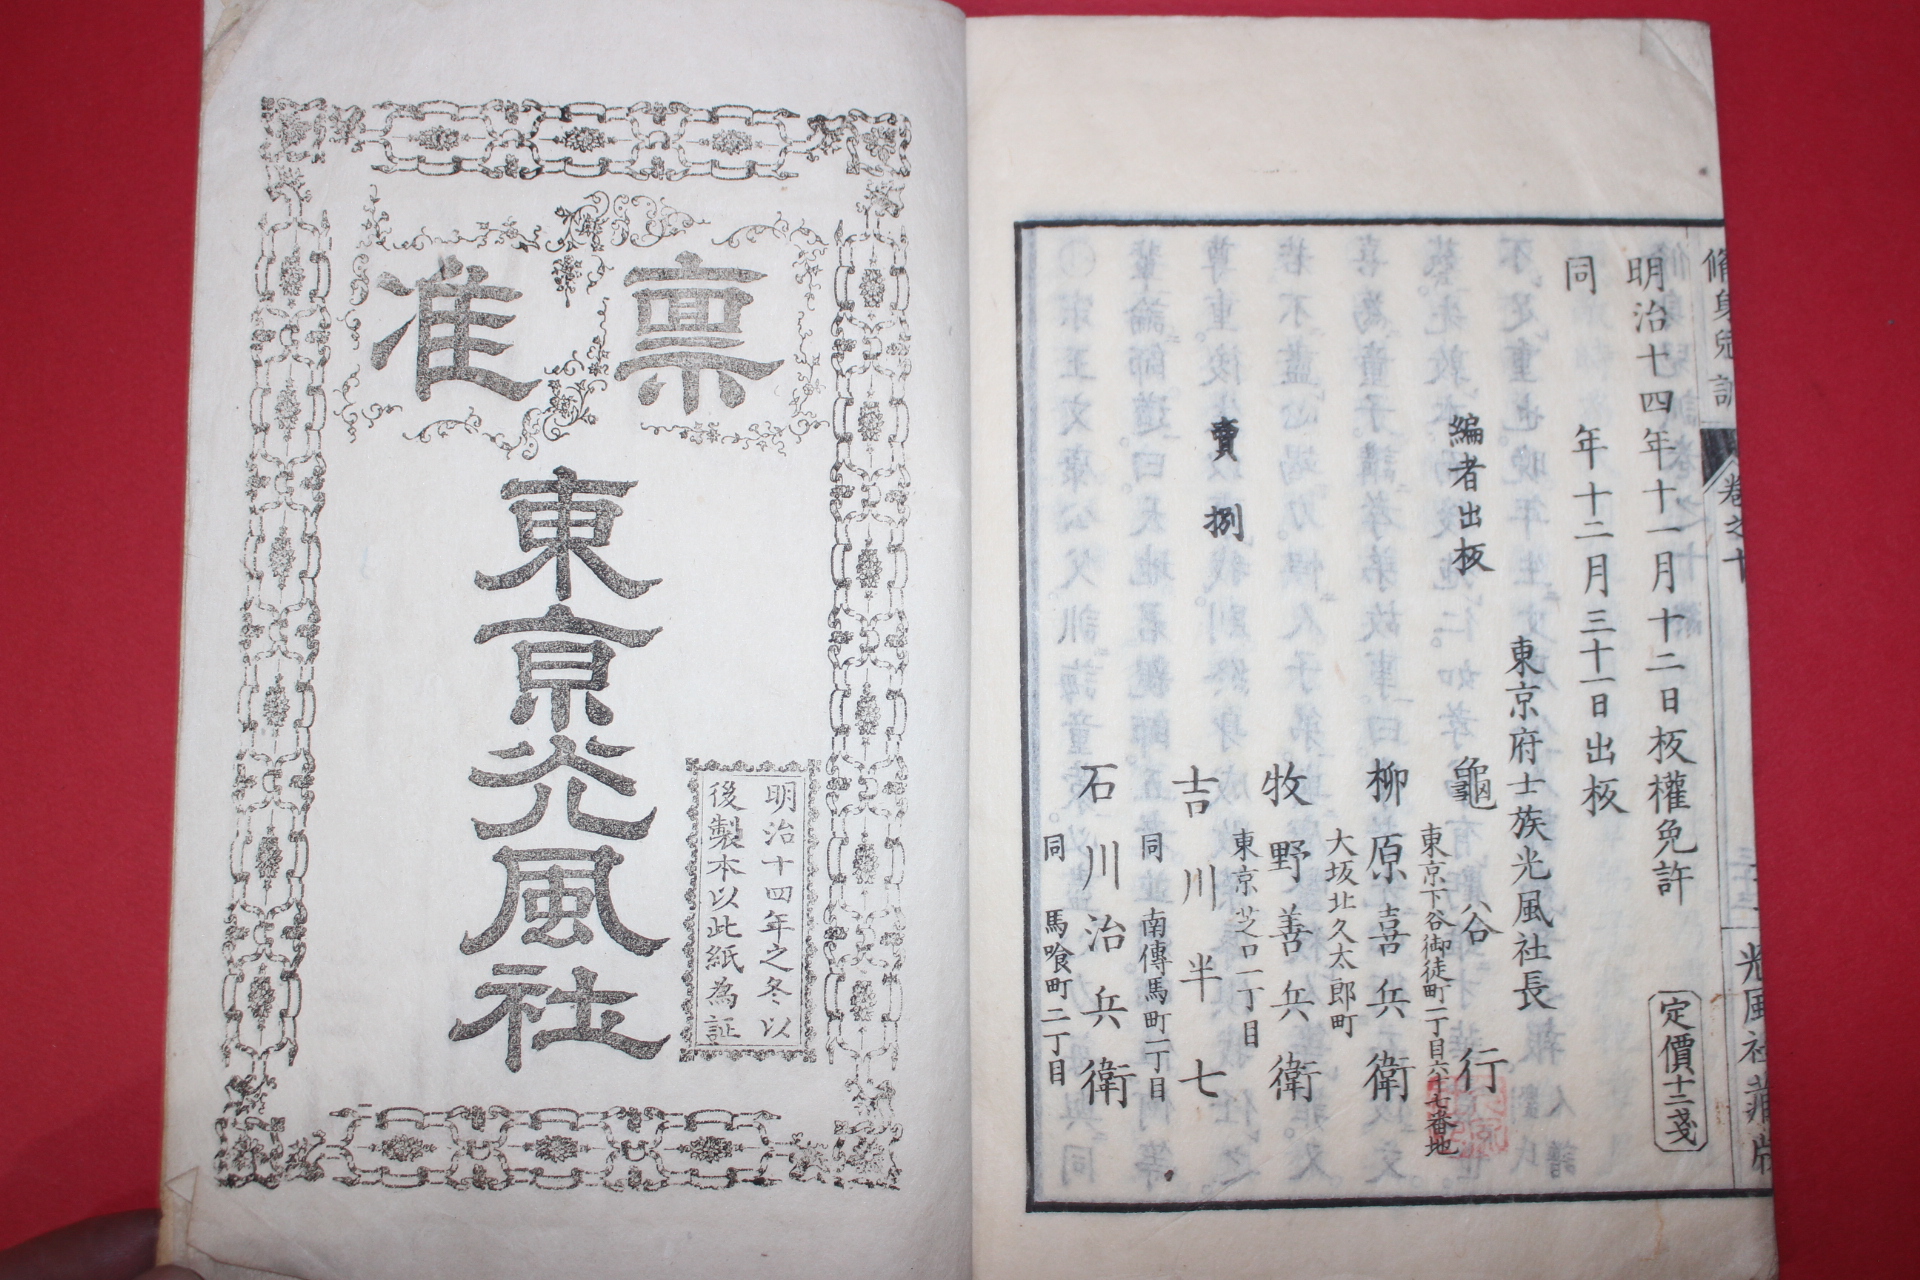 脩身児訓
卷之十
光風社蔵版
明治十四年十一月十二日板權免許
同年十二月三十一日出板
定價十二戔
東京府士族光風社長
編者出板
龜谷行
東京下谷御徒町一丁目六十七番地
賣捌
柳原喜兵衛
大坂北久太郎町
牧野善兵衛
東京芝口一丁目
吉川半七
同南傳馬町一丁目
石川治兵衛
同馬喰町二丁目
稟准
東京光風社
明治十四年之冬以
後製本以此紙為証